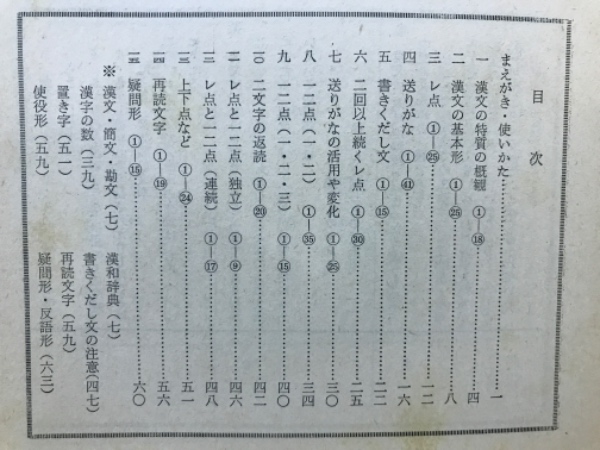 目　次
まえがき・使いかた……………一
一　漢文の特質の概観　①―⑱……………四
二　漢文の基本形　①―㉕……………八
三　レ点　①―㉕……………一二
四　送りがな　①―㊶……………一六
五　書きくだし文　①―⑮……………二二
六　二回以上続くレ点　①―㉚……………二五
七　送りがなの活用や変化　①―㉕……………三〇
八　一二点（一・二）　①―㉟……………三四
九　一二点（一・二・三）　①―⑮……………四〇
一〇　二文字の返読　①―⑳……………四二
一一　レ点と一二点（独立）　①―⑨……………四六
一二　レ点と一二点（連続）　①―⑰……………四八
一三　上下点など　①―㉔……………五一
一四　再読文字　①―⑲……………五六
一五　疑問形　①―⑮……………六〇
※　漢文・簡文・勘文（七）　漢和辞典（七）
漢字の数（三九）　書きくだし文の注意（四七）
置き字（五一）　再読文字（五九）
使役形（五九）　疑問形・反語形（六三）